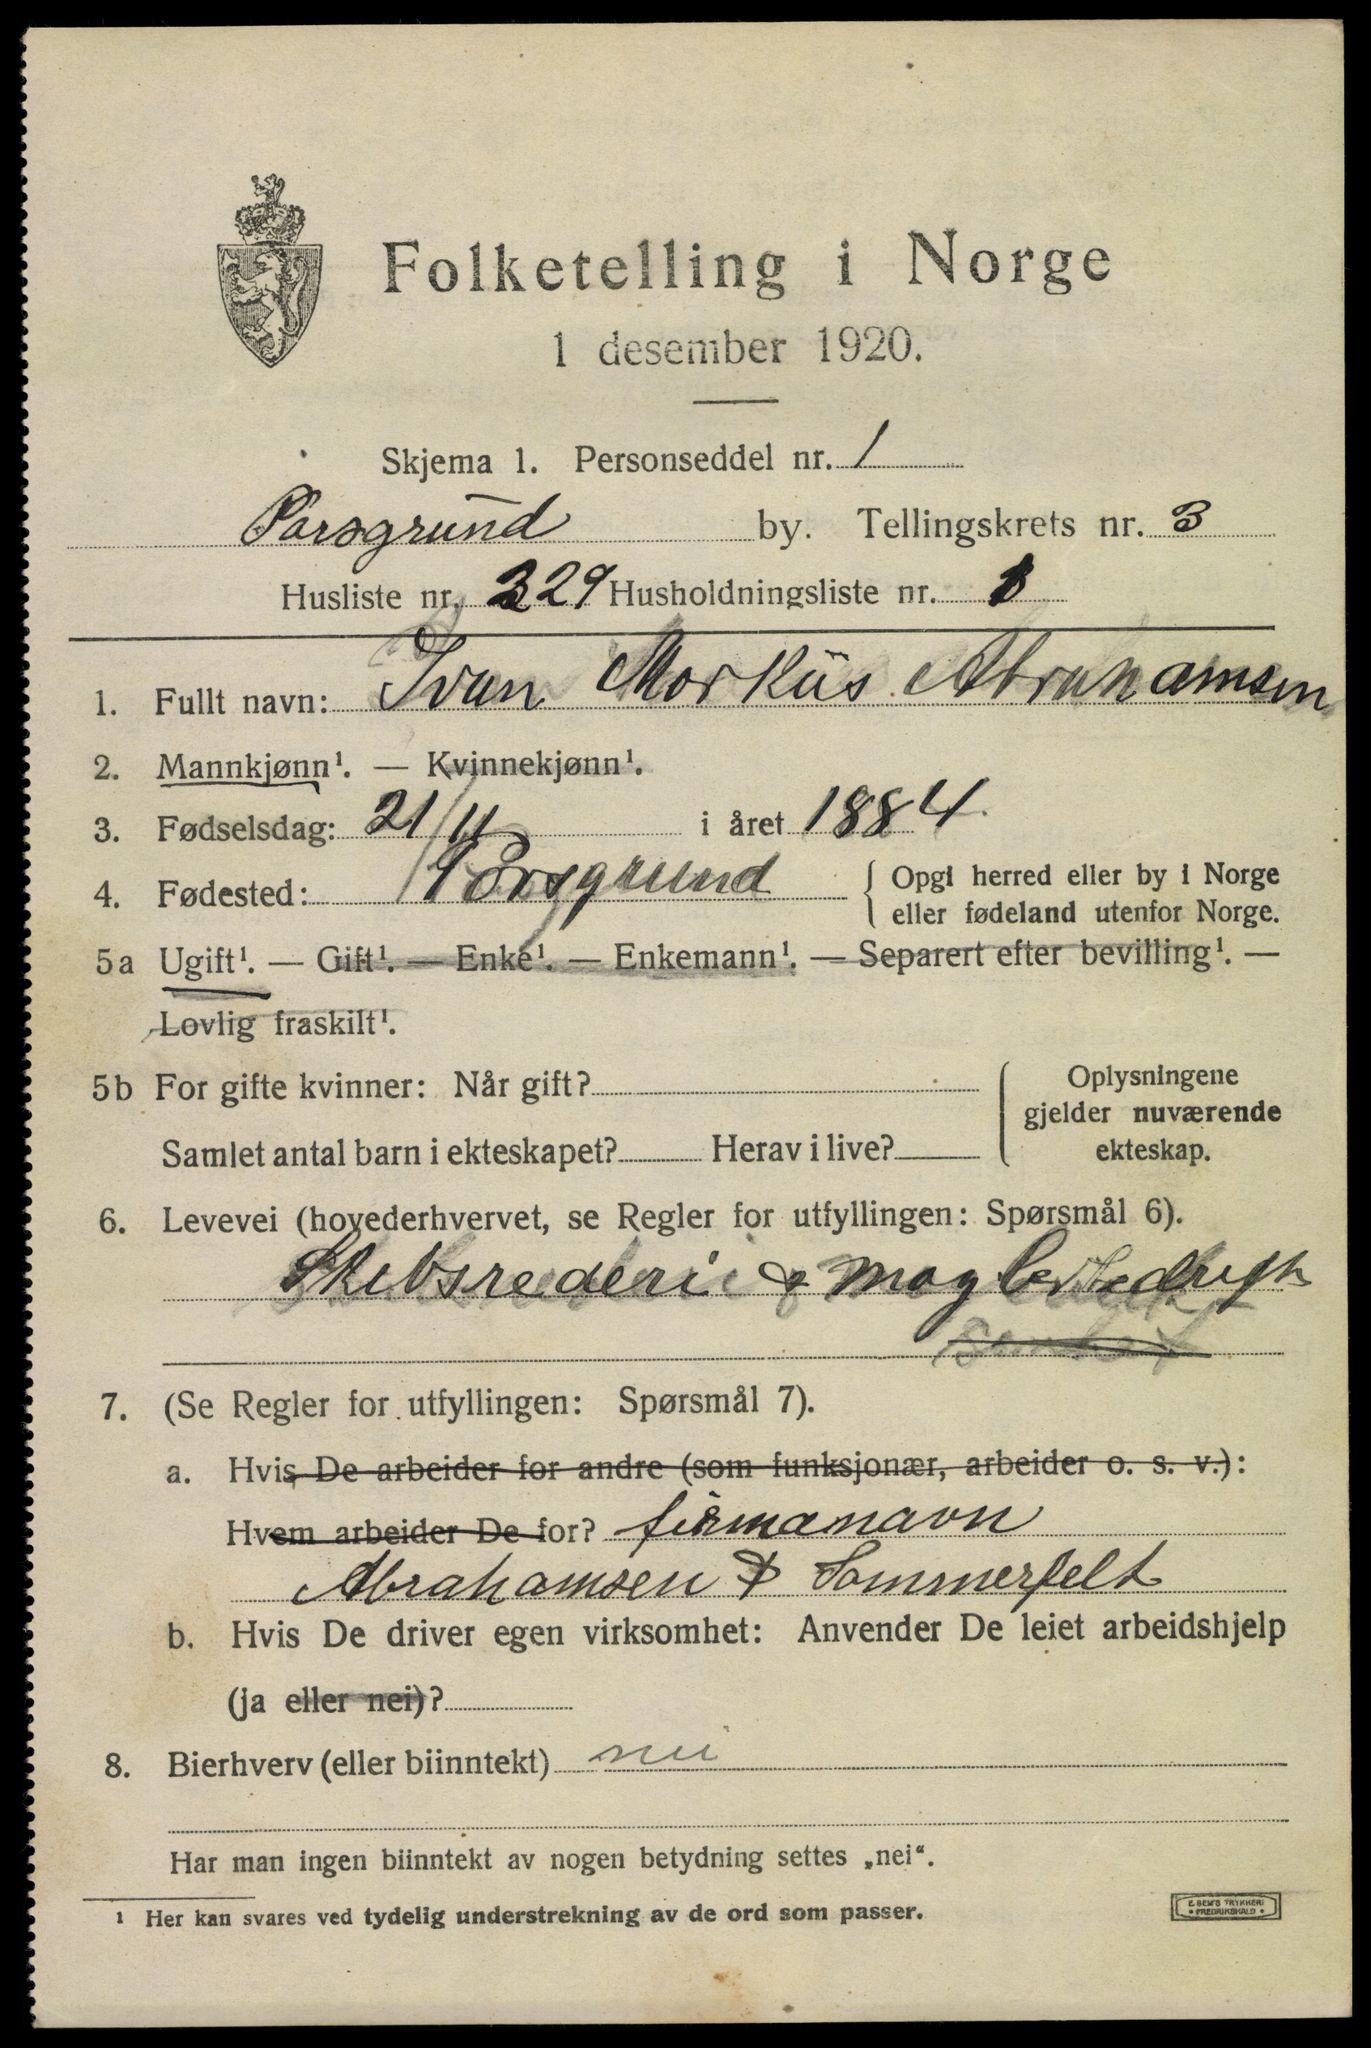 Folketelling i Norge
1 desember 1920.
Skjema 1. Personseddel nr. 1
Porsgrund by. Tellingskrets nr. 3
Husliste nr. 329 Husholdningsliste nr. 1
1. Fullt navn: Ivan Markus Abrahamsen
2. Mannkjønn¹. — Kvinnekjønn¹.
3. Fødselsdag: 21/11 i året 1884
4. Fødested: Porsgrund { Opgi herred eller by i Norge
eller fødeland utenfor Norge.
5a Ugift¹. — Gift¹. — Enke¹. — Enkemann¹. — Separert efter bevilling¹. —
Lovlig fraskilt¹.
5b For gifte kvinner: Når gift? { Oplysningene
gjelder nuværende
Samlet antal barn i ekteskapet? Herav i live? ekteskap.
6. Levevei (hovederhvervet, se Regler for utfyllingen: Spørsmål 6).
Skibsrederi &
7. (Se Regler for utfyllingen: Spørsmål 7).
a. Hvis De arbeider for andre (som funksjonær, arbeider o. s. v.):
Hvem arbeider De for? firmanavn
Abrahamsen & Sommerfelt
b. Hvis De driver egen virksomhet: Anvender De leiet arbeidshjelp
(ja eller nei)?
8. Bierhverv (eller biinntekt) nei
Har man ingen biinntekt av nogen betydning settes „nei“.
¹ Her kan svares ved tydelig understrekning av de ord som passer.
E. SEM'S TRYKKERI
• FREDRIKSHALD •